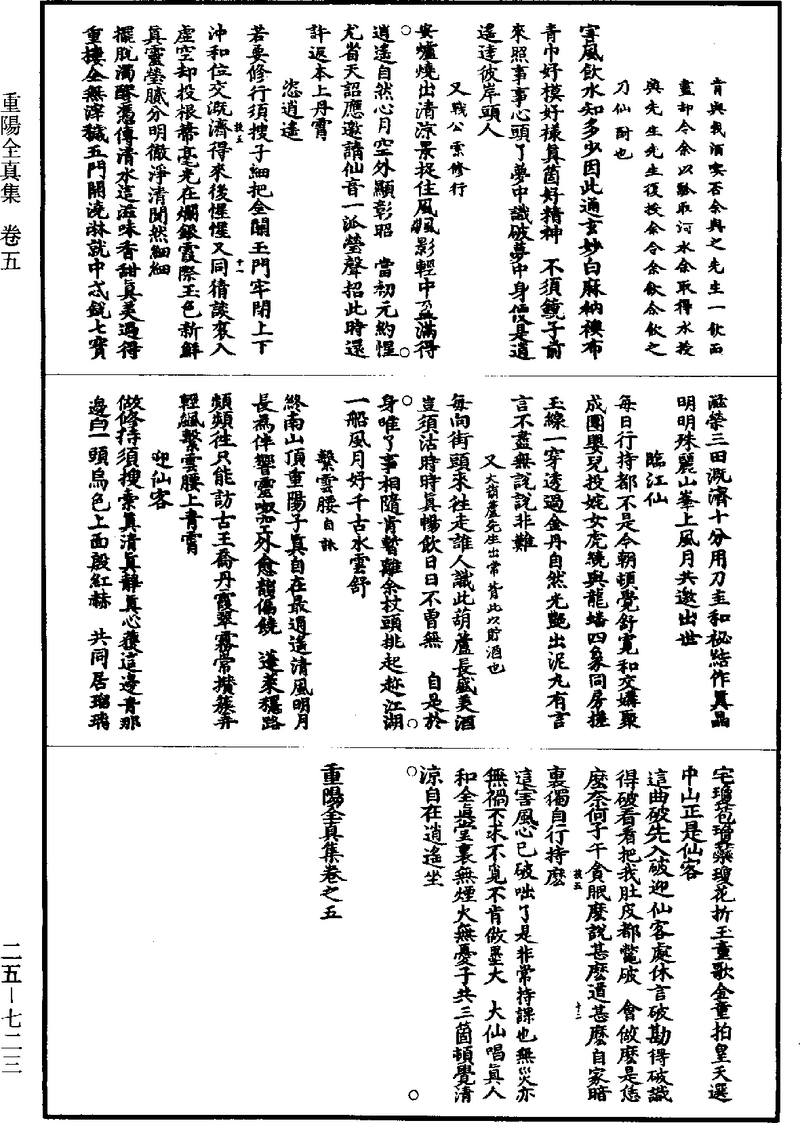 肯與我酒喫否余與之先生一飲而
盡却令余以瓢取河水余取得水授
與先生先生復授余令余飲余飲之
乃仙酎也
害風飲水知多少因此通玄妙白麻衲襖布
青巾好模好樣真箇好精神　不須鏡子前
來照事事心頭了夢中識破夢中身便是逍
遙達彼岸頭人
又戰公索修行
安爐燒出清涼景捉住風颩影輕中盃滿得
逍遙自然心月空外顯彰昭　當初元約惺
尤省天詔應邀請仙音一派瑩聲招此時還
許返本上丹霄
恣逍遙
若要修行須搜子細把金關玉門牢閉上下
沖和位交溉濟得來後惺惺又同猜談衮入
虛空却投根蔕毫光在爛銀霞際玉色新鮮
真靈瑩膩分明徹淨清閑然細細
擺脫濁醪憑傳清水這滋味香甜真美過得
重樓全無滓穢五門開澆淋就中忒銳七寶
滋榮三田溉濟十分用刀圭和祕結作真晶
明明珠麗山峯上風月共邀出世
臨江仙
每日行持都不是今朝頓覺舒寬和交媾聚
成團嬰兒投姹女虎繞與龍蟠四象同房撞
玉線一穿透過金丹自然光豔出泥丸有言
言不盡無說說非難
又大葫蘆先生出常背此以貯酒也
每向街頭來往走誰人識此葫蘆長盛美酒
豈須沽時時真暢飲日日不曾無　自是於
身唯了事相隨肯暫離余杖頭挑起趂江湖
一船風月好千古水雲舒
繫雲腰自詠
終南山頂重陽子真自在最逍遙清風明月
長為伴響靈嗷空外愈韻偏饒　蓬萊穩路
頻頻往只能訪古王喬丹霞翠霧常攢簇弄
輕飆繫雲腰上青霄
迎仙客
做修持須搜索真清真靜真心獲這邊青那
邊白一頭烏色上面殷紅赫　共同居瑠璃
宅瓊苞瓊蘂瓊花折玉童歌金童拍皇天選
中山正是仙客
這曲破先入破迎仙客處休言破勘得破識
得破看看把我肚皮都鼈破　會做麼是恁
麼柰何子午貪眠麼說甚麼道甚麼自家暗
裏獨自行持麼
這害風心已破咄了是非常持課也無災亦
無禍不求不覓不肯做墨大　大仙唱真人
和全真堂裏無煙火無憂子共三箇頓覺清
涼自在逍遙坐
重陽全真集卷之五
重陽全真集　卷五
二五—七二三